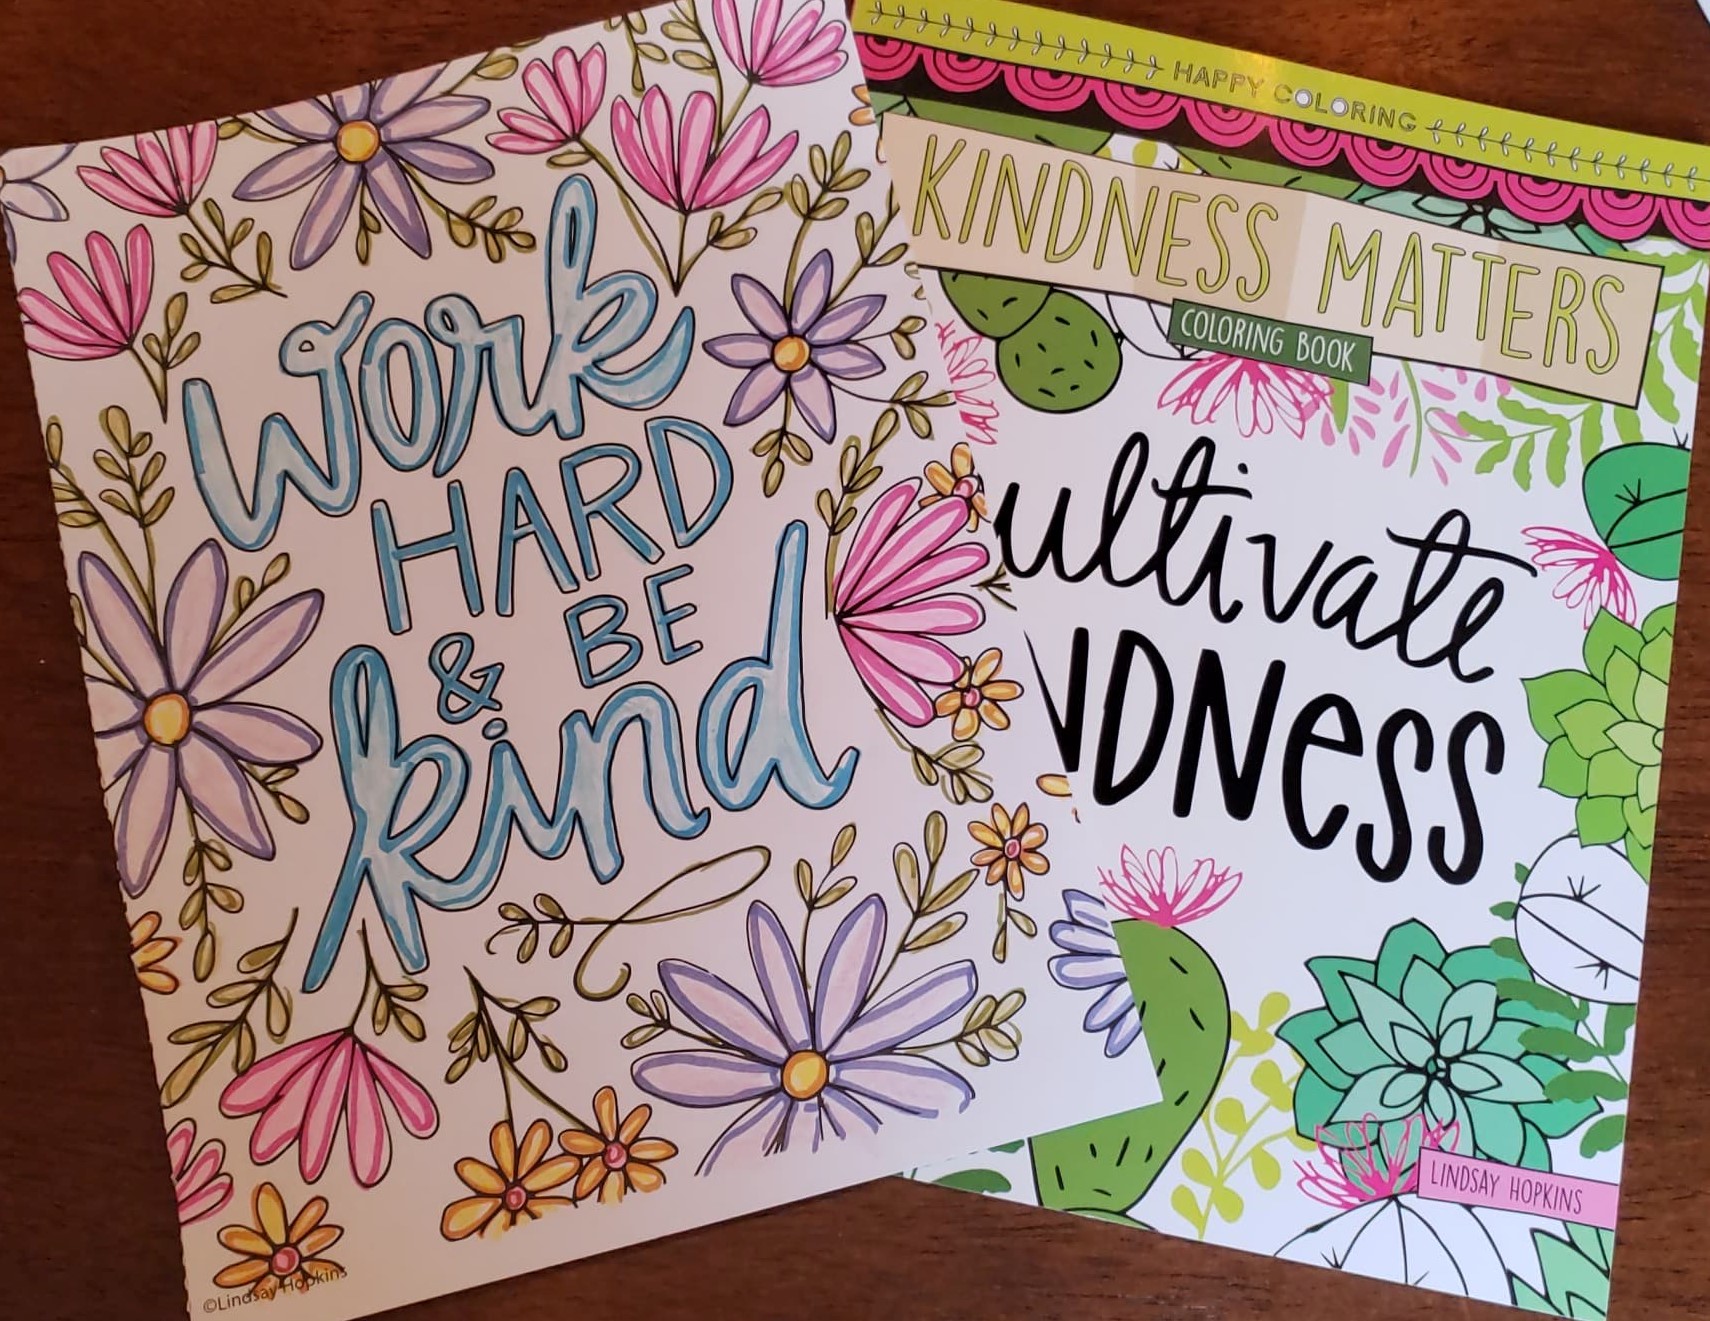 Work
HARD
& BE
kind
©Lindsay Hopkins
HAPPY COLORING
KINDNESS MATTERS
COLORING BOOK
ultivate
NDNeSS
LINDSAY HOPKINS